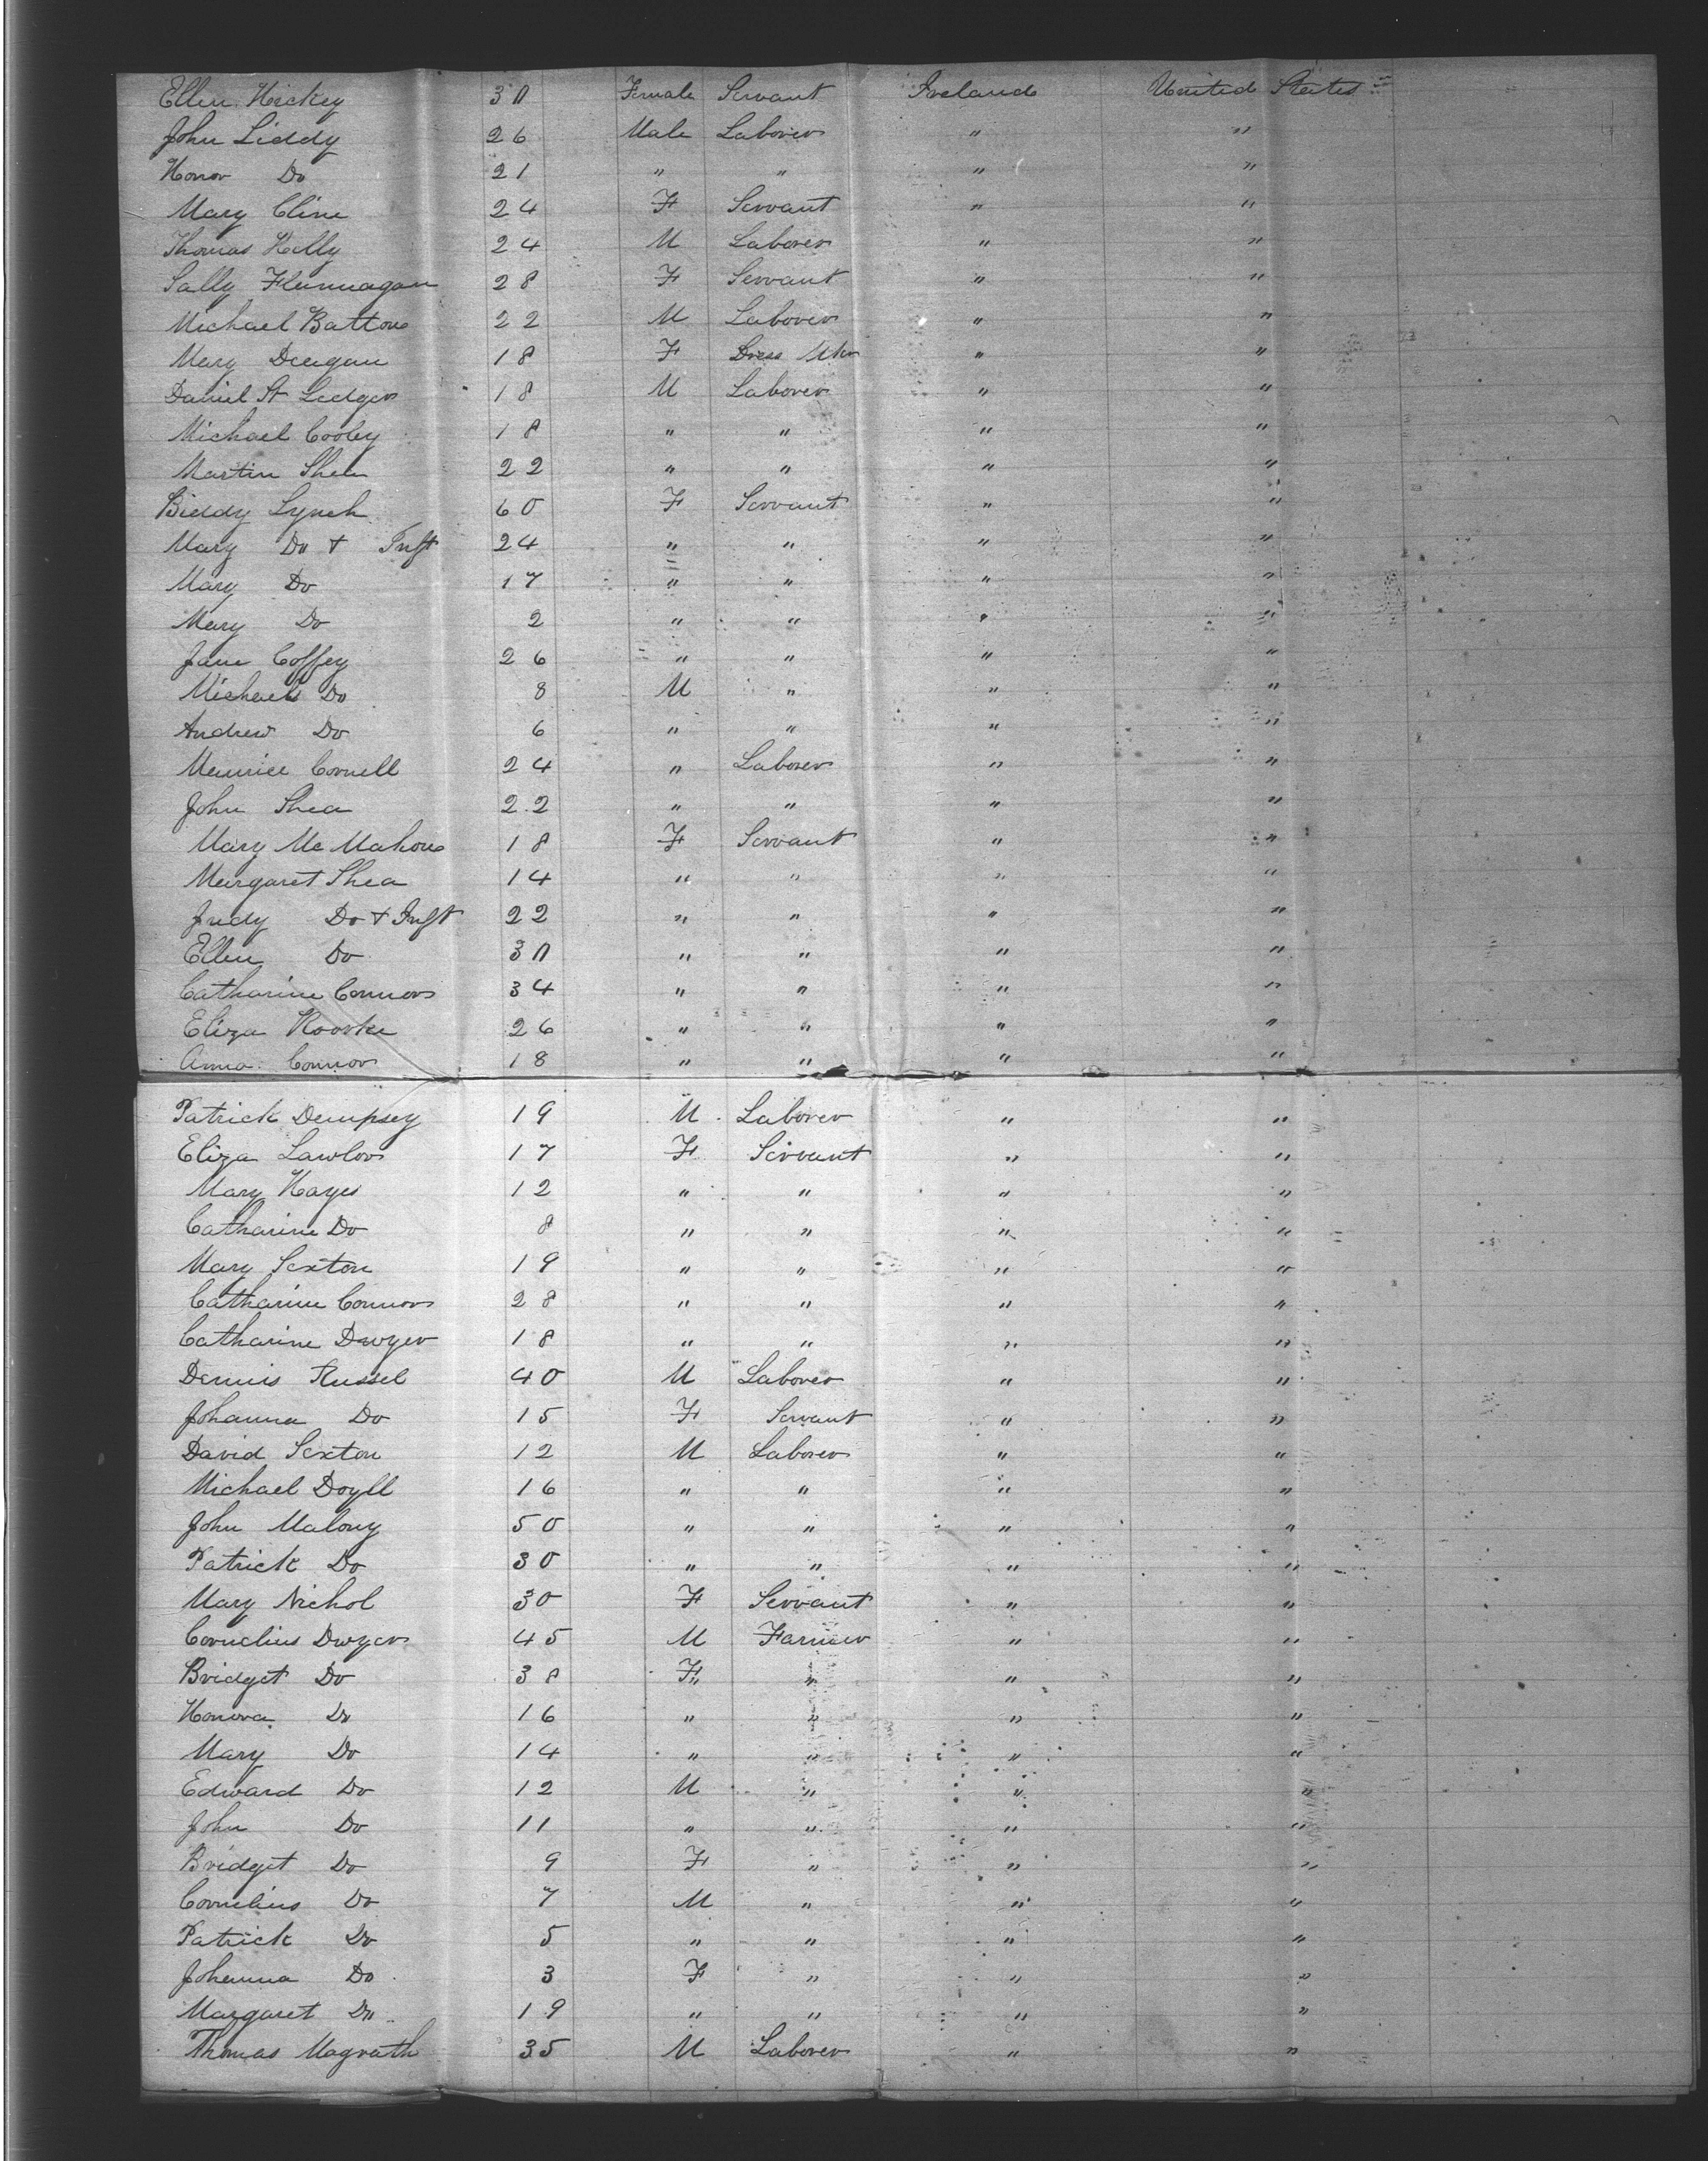 Ellen Hickey 30 Female Servant Ireland United States
John Liddy 26 Male Laborer " "
Honor Do 21 " " " "
Mary Cline 24 F Servant " "
Thomas Kelly 24 M Laborer " "
Sally Flannagan 28 F Servant " "
Michael Batton 22 M Laborer " "
Mary Deegan 18 F Dress Mkr " "
Daniel St Ledger 18 M Laborer " "
Michael Cooley 18 " " " "
Martin Shea 22 " " " "
Biddy Lynch 60 F Servant " "
Mary Do + Inft 24 " " " "
Mary Do 17 " " " "
Mary Do 2 " " " "
Jane Coffey 26 " " " "
Michael Do 8 M " " "
Andrew Do 6 " " " "
Maurice Connell 24 " Laborer " "
John Shea 22 " " " "
Mary Mc Mahon 18 F Servant " "
Margaret Shea 14 " " " "
Judy Do + Inft 22 " " " "
Ellen Do 30 " " " "
Catharine Connors 34 " " " "
Eliza Roorke 26 " " " "
Anna Connor 18 " " " "
Patrick Dempsey 19 M Laborer " "
Eliza Lawlor 17 F Servant " "
Mary Hayes 12 " " " "
Catharine Do 8 " " " "
Mary Sexton 19 " " " "
Catharine Connors 28 " " " "
Catharine Dwyer 18 " " " "
Dennis Russel 40 M Laborer " "
Johanna Do 15 F Servant " "
David Sexton 12 M Laborer " "
Michael Doyll 16 " " " "
John Malony 50 " " " "
Patrick Do 30 " " " "
Mary Nichol 30 F Servant " "
Cornelius Dwyer 45 M Farmer " "
Bridget Do 38 F " " "
Honora Do 16 " " " "
Mary Do 14 " " " "
Edward Do 12 M " " "
John Do 11 " " " "
Bridget Do 9 F " " "
Cornelius Do 7 M " " "
Patrick Do 5 " " " "
Johanna Do 3 F " " "
Margaret Do 19 " " " "
Thomas Magrath 35 M Laborer " "